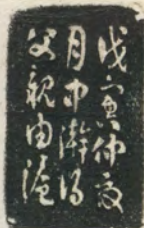 戊寅仲夏
月中澣得
父親由滬